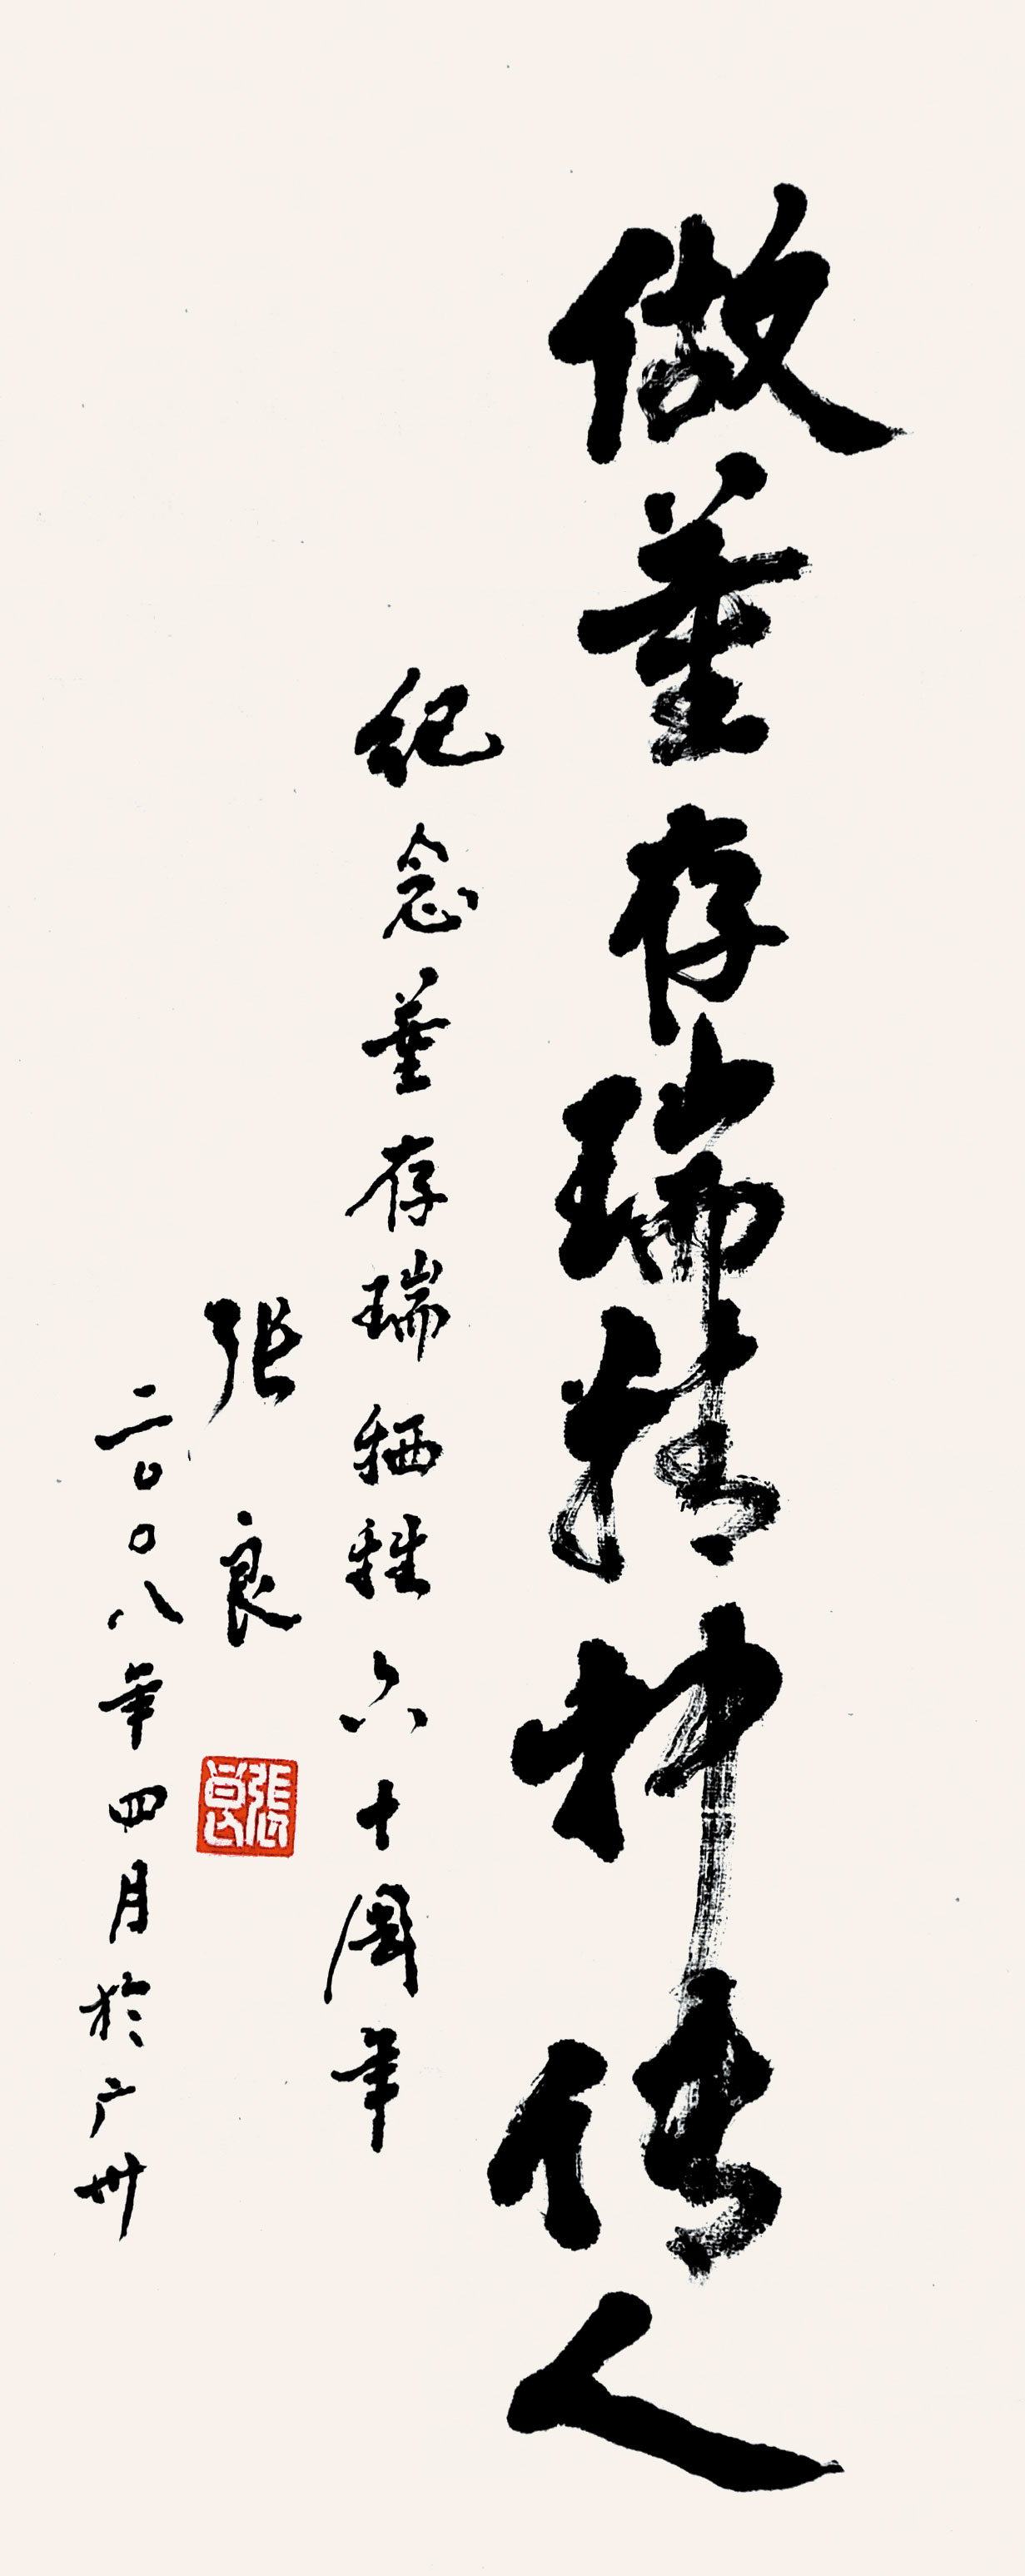 做董存瑞精神传人
纪念董存瑞牺牲六十周年
张良
二〇〇八年四月於广州
張良